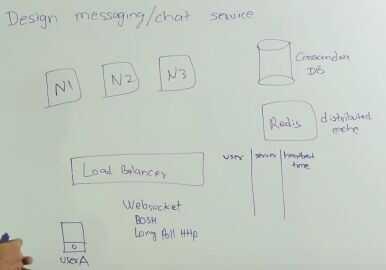 Design messaging/chat service
N1
N2
N3
Cassandra
DB
Redis
distributed
cache
Load Balancer
user
server
heartbeat
time
Websocket
BOSH
Long Poll HTTP
userA